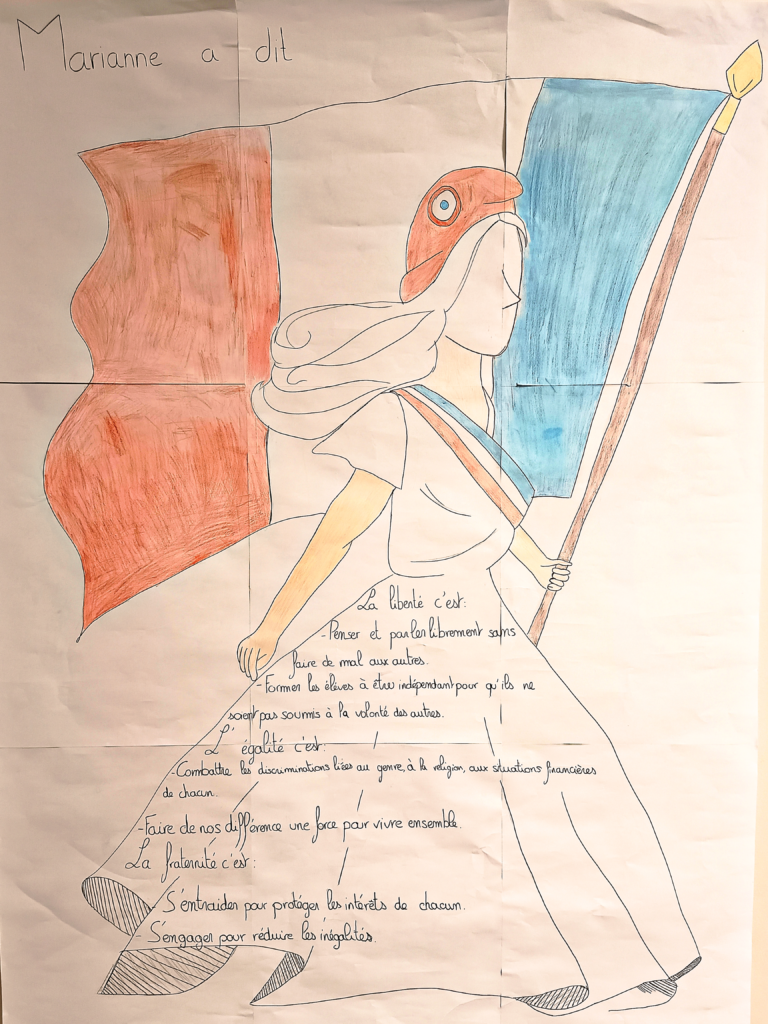 Marianne a dit
La liberté c'est:
-Penser et parler librement sans
faire de mal aux autres.
-Former les élèves à être indépendant pour qu'ils ne
soient pas soumis à la volonté des autres.
L'égalité c'est:
-Combattre les discriminations liées au genre, à la religion, aux situations financières
de chacun.
-Faire de nos différence une force pour vivre ensemble.
La fraternité c'est:
S'entraider pour protéger les intérêts de chacun.
S'engager pour réduire les inégalités.